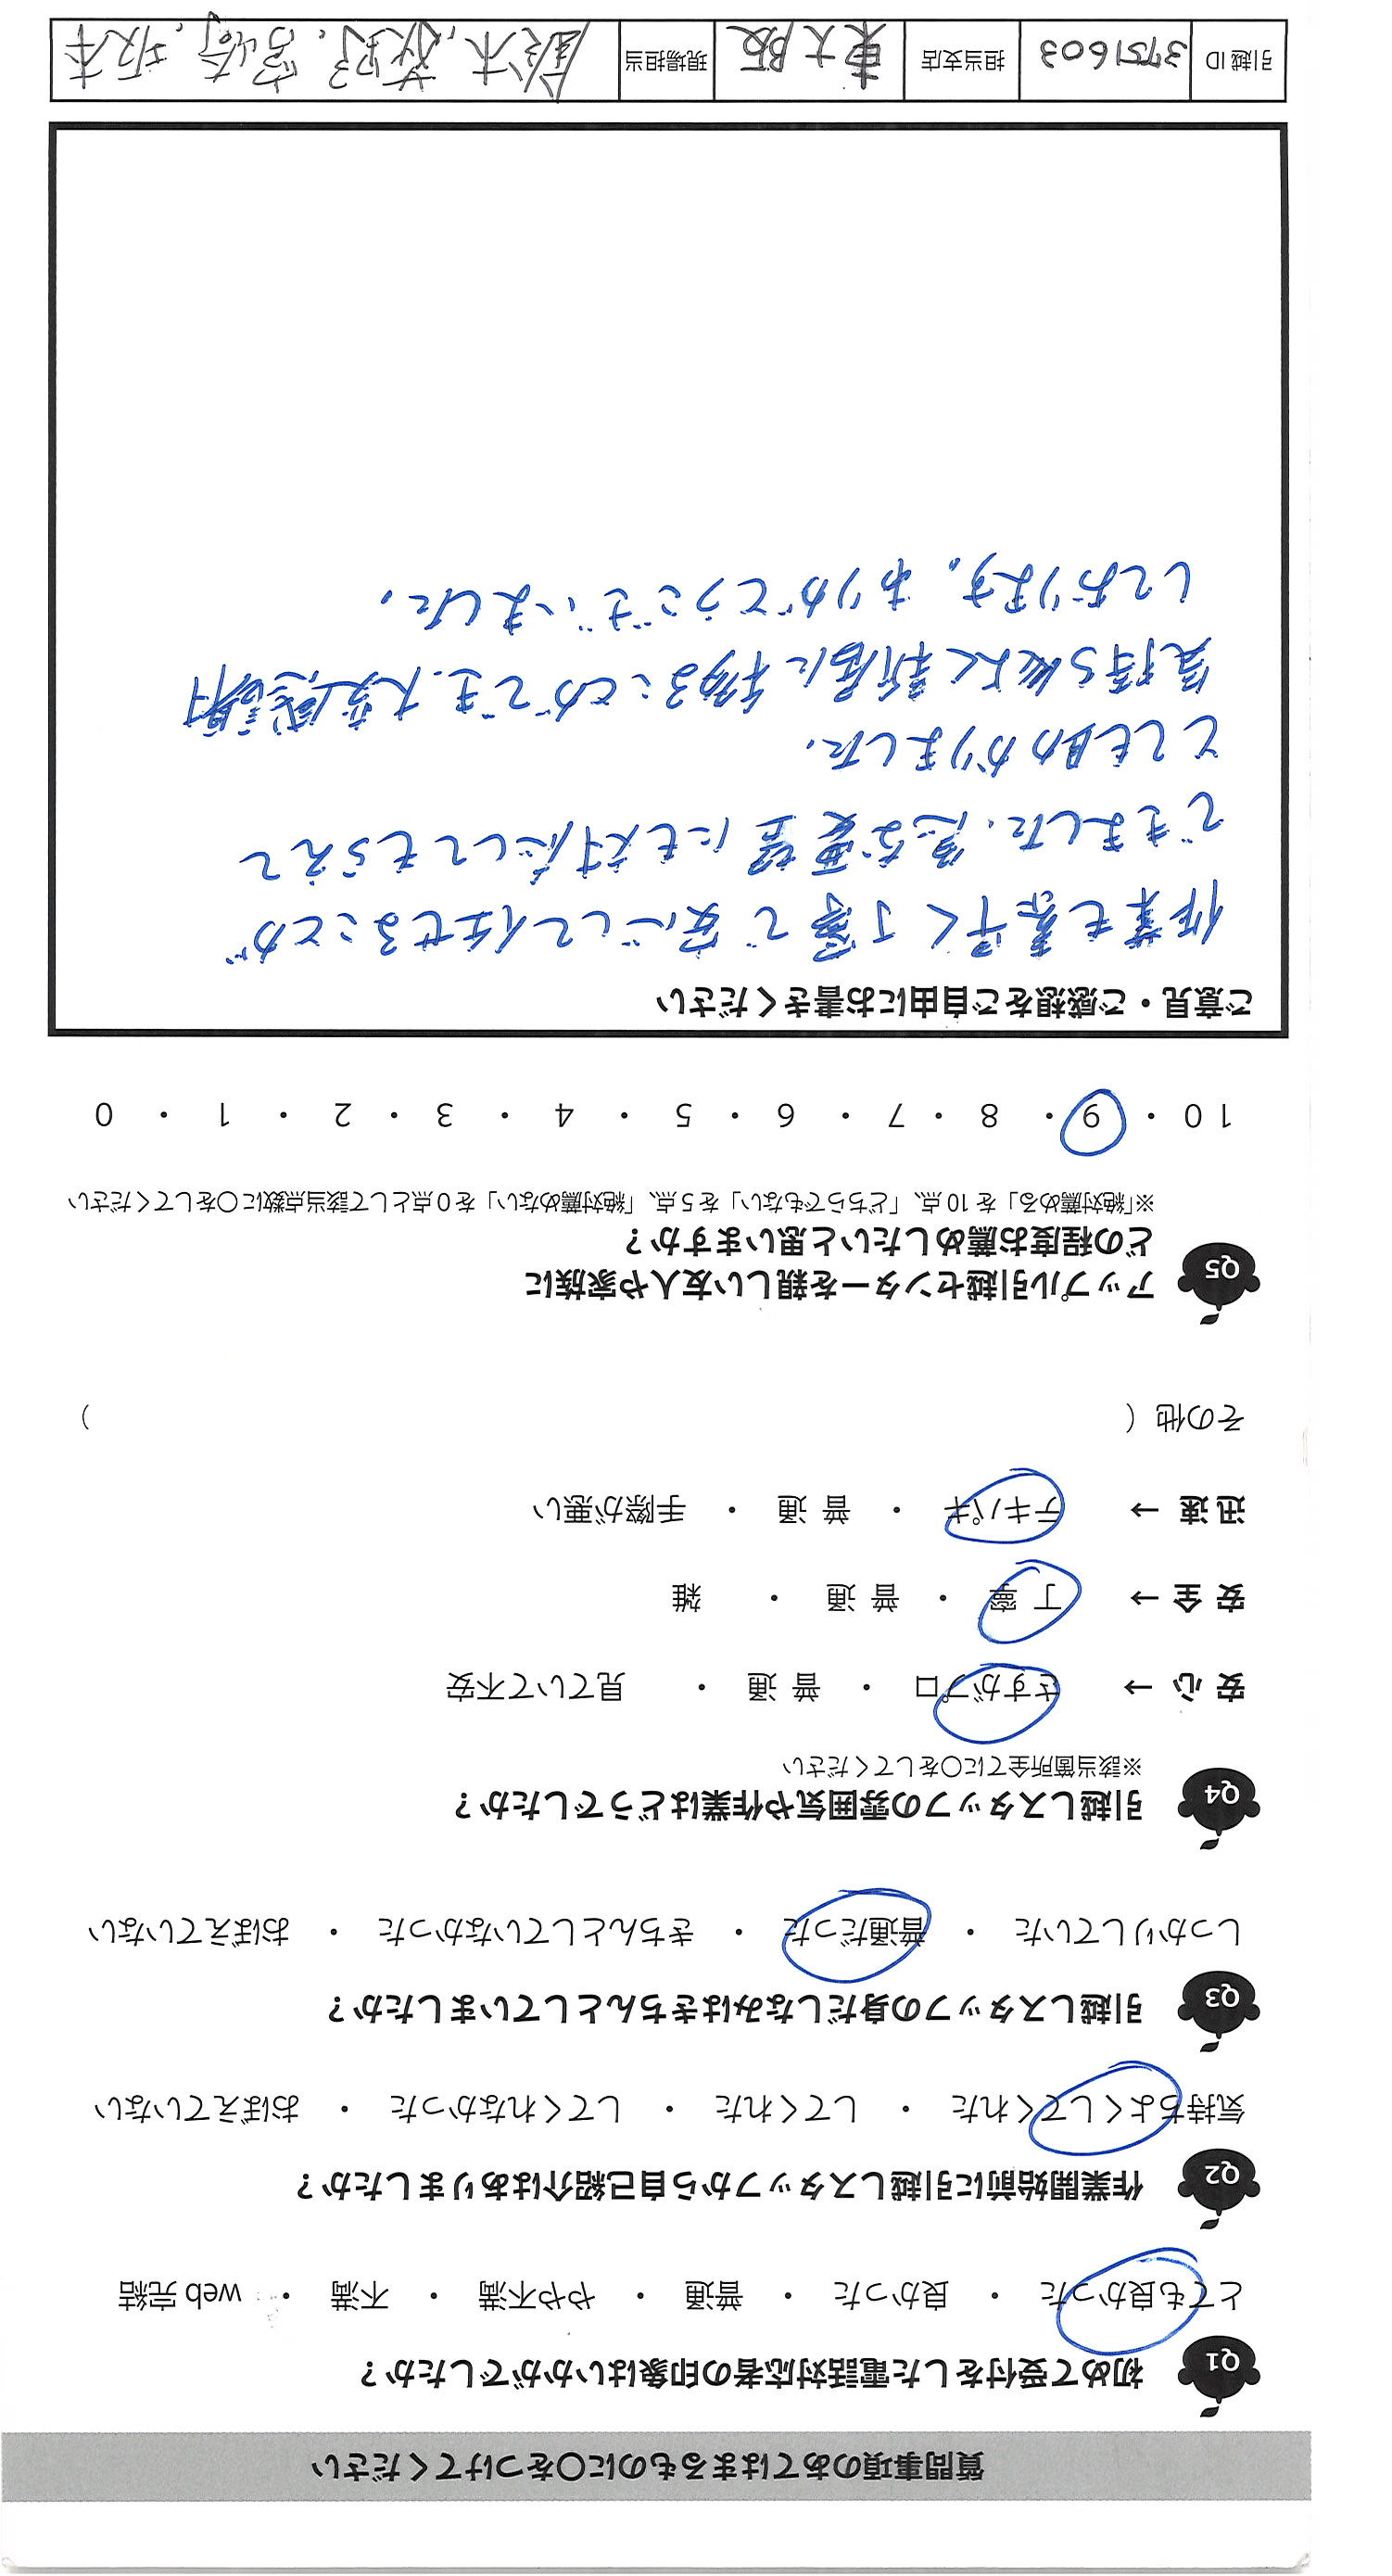 質問事項のあてはまるものに〇をつけてください
Q1 初めて受付をした電話対応者の印象はいかがでしたか？
とても良かった ・ 良かった ・ 普通 ・ やや不満 ・ 不満 ・ web 完結
Q2 作業開始前に引越しスタッフから自己紹介はありましたか？
気持ちよくしてくれた ・ してくれた ・ してくれなかった ・ おぼえていない
Q3 引越しスタッフの身だしなみはきちんとしていましたか？
しっかりしていた ・ 普通だった ・ きちんとしていなかった ・ おぼえていない
Q4 引越しスタッフの雰囲気や作業はどうでしたか？
※該当箇所全てに〇をしてください
安 心 → さすがプロ ・ 普 通 ・ 見ていて不安
安 全 → 丁 寧 ・ 普 通 ・ 雑
迅 速 → テキパキ ・ 普 通 ・ 手際が悪い
その他（ ）
Q5 アップル引越センターを親しい友人や家族に
どの程度お薦めしたいと思いますか？
※「絶対薦める」を 10 点、「どちらでもない」を 5 点、「絶対薦めない」を 0 点として該当点数に〇をしてください
10 ・ 9 ・ 8 ・ 7 ・ 6 ・ 5 ・ 4 ・ 3 ・ 2 ・ 1 ・ 0
ご意見・ご感想をご自由にお書きください
作業も素早く丁寧で安心して任せることが
できました。急な要望にも対応してもらえて
とても助かりました。
気持ち良く新居に移ることができ、大変感謝
しております。ありがとうございました。
引越 ID 3751603 担当支店 東大阪 現場担当 鈴木、荻野、宮崎、坂本